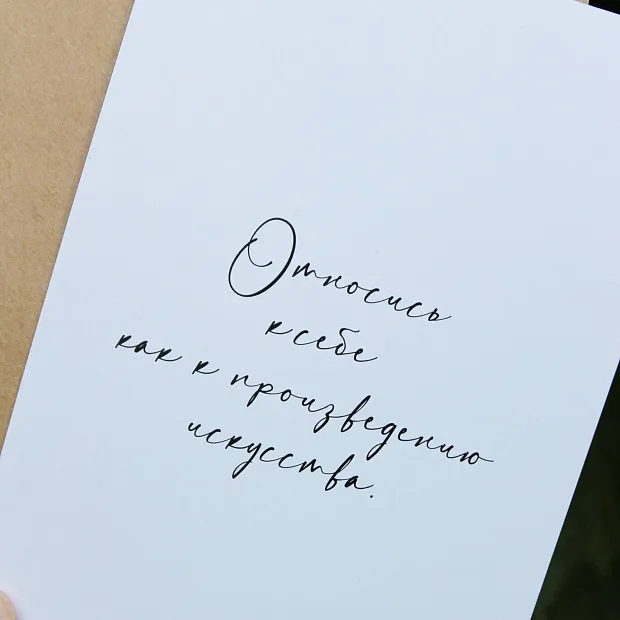 Относись
к себе
как к произведению
искусства.